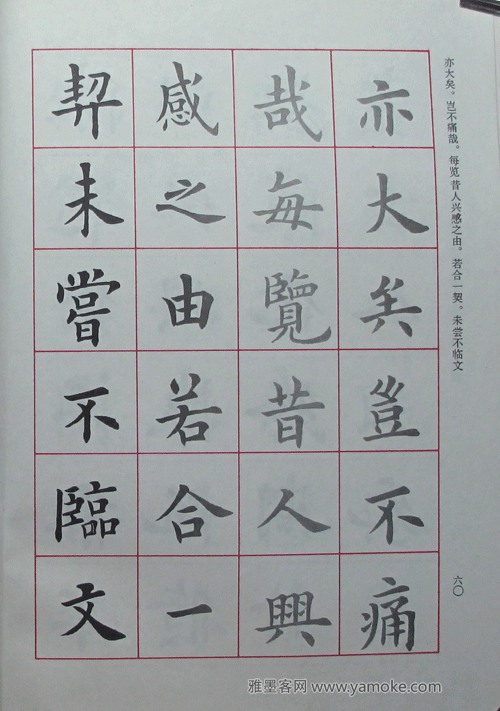 亦大矣。岂不痛哉。每览昔人兴感之由。若合一契。未尝不临文
亦大矣豈不痛
哉每覽昔人興
感之由若合一
契未嘗不臨文
六〇
雅墨客网 www.yamoke.com